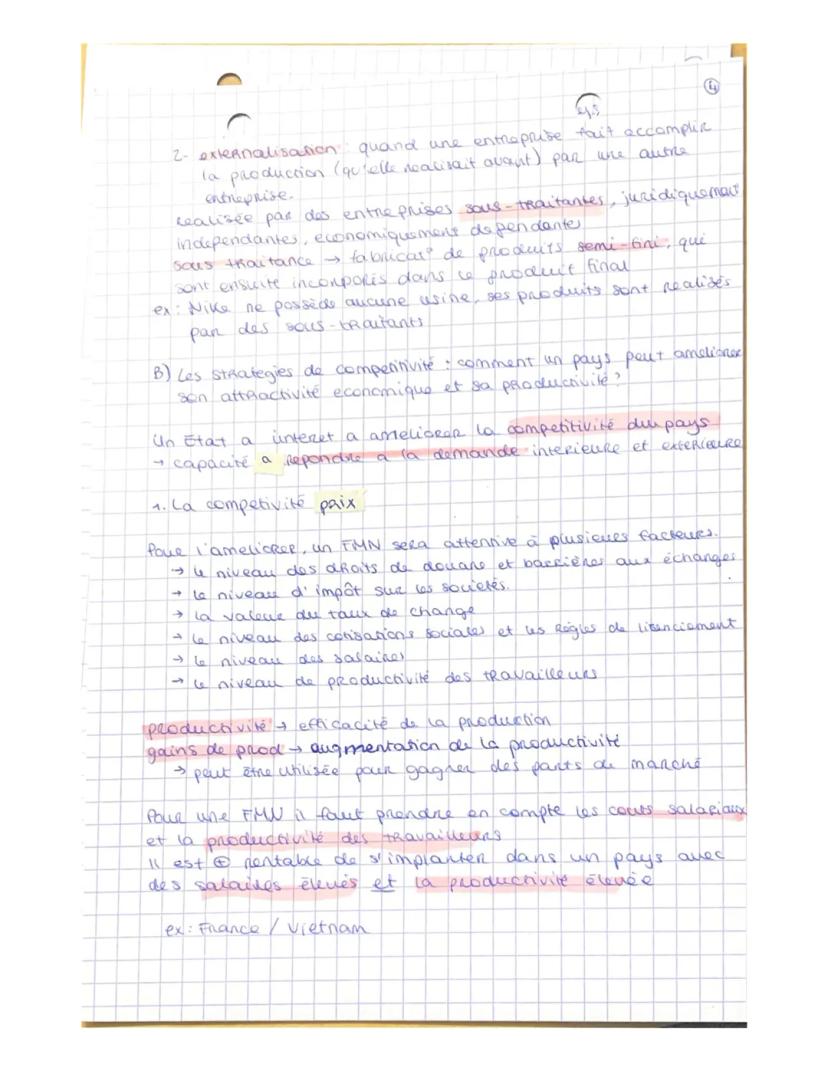 4
2- externalisation : quand une entreprise fait accomplir
la production (qu'elle realisait avant) par une autre
entreprise.
realisée par des entreprises sous-traitantes, juridiquement
independantes, economiquement dependantes
sous traitance → fabricat° de produits semi-fini, qui
sont ensuite incorporés dans le produit final
ex : Nike ne possède aucune usine, ses produits sont realisés
par des sous-traitants
B) Les strategies de competitivité : comment un pays peut ameliorer
son attractivité economique et sa productivité ?
Un Etat a interet a ameliorer la competitivité du pays
→ capacité a repondre a la demande interieure et exterieure
1. La competivité prix
Pour l'ameliorer, un FMN sera attentive à plusieurs facteurs.
→ le niveau des droits de douane et barrières aux échanges
→ le niveau d'impôt sur les societés.
→ la valeur du taux de change
→ le niveau des cotisations sociales et les règles de licenciement
→ le niveau des salaires
→ le niveau de productivité des travailleurs
productivité → efficacité de la production
gains de prod → augmentation de la productivité
→ peut être utilisée pour gagner des parts de marché
Pour une FMN il faut prendre en compte les couts salariaux
et la productivité des travailleurs
il est ⊕ rentable de s'implanter dans un pays avec
des salaires élevés et la productivité élevée
ex : France / Vietnam